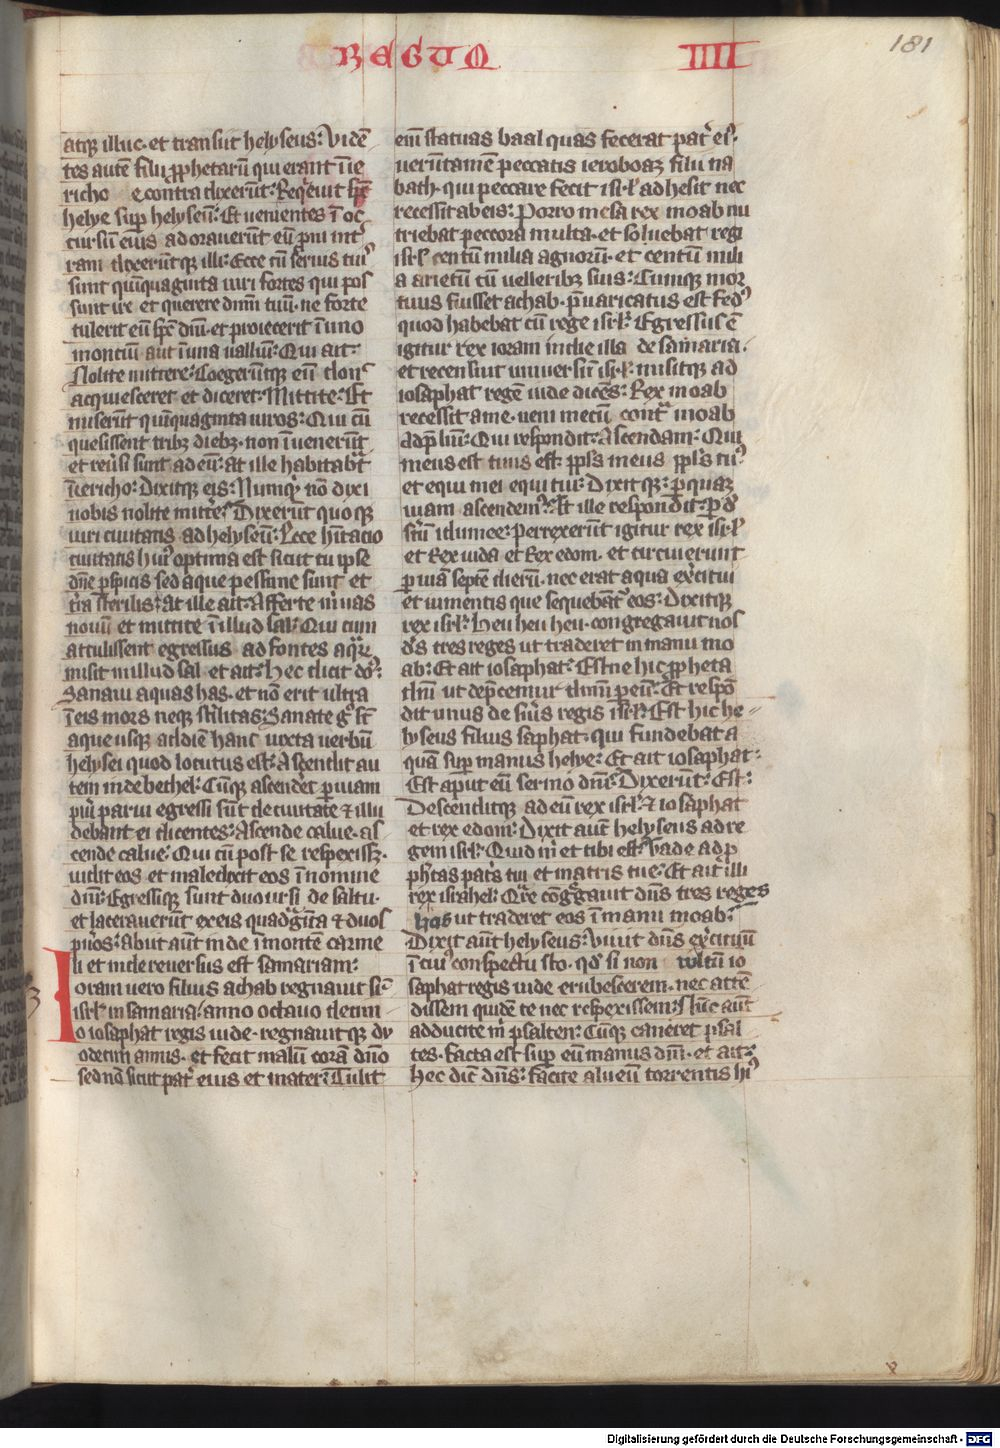 REGUM IIII
181
atq; illuc · et transiit helyseus: Vidē
tes autē filii ꝓphetarū qui erant ī ie
richo econtra dixerūt: Reqͥevit sp̄c
helye suꝑ helyseū: Et venientes ī oc
cursū eius adoraverūt eū ꝓni int͛
ram dixerūtq; illi: Ecce cū servis tuis
sunt quīquaginta viri fortes qui pos
sunt ire et querere dnm̄ tuū · ne forte
tulerit eū sp̄c dnī · et proiecerit ī uno
montiū aut ī una valliū: Qui ait:
Nolite mittere: Coegerūtq; eū don͛
acquiesceret et diceret: Mittite: Et
miserūt quīquaginta viros: Qui cū
quesissent tribꝫ diebꝫ · non īvenerūt
et rev͛si sunt ad eū: at ille habitab͛t
ī iericho: Dixitq; eis: Numqͥ nō dixi
vobis nolite mitte͛: Dixerūt quoq;
viri civitatis ad helyseū: Ecce hītacio
civitatis huiꝰ optima est sicut tu ipse
dn̄e ꝑspicis sed aque pessime sunt et
tr̄a sterilis: at ille ait: Afferte m̄ vas
novū et mittite ī illud sal: Qui cum
attulissent egressus ad fontes aqͣꝝ
misit in illud sal et ait: Hec dicit dn̄s:
Sanavi aquas has · et nō erit ultra
ī eis mors neq; st͛ilitas: Sanate gͦ st̄
aque usq; ad diē hanc iuxta verbū
helysei quod locutus est: Ascendit au
tem inde bethel: Cūq; ascende͛t ꝑ viam
pu͛i parvi egressi sūt de civitate ⁊ illu
debant ei dicentes: Ascende calve · as
cende calve: Qui cū post se respexissꝫ ·
vidit eos et maledixit eos ī nomine
dnī: Egressiq; sunt duo ursi de saltu ·
et laceraverūt ex eis quadͣgīta ⁊ duos
pu͛os: Abiit aūt inde ī monte carme
li et inde reversus est samariam:
Ioram vero filius achab regnavit suꝑ
isrl̄ in samaria: anno octavo decim
o iosaphat regis iude · regnavitq; du
odecim annis · et fecit malū corā dn̄o
sed nō sicut pat͛ eius et mater: Tulit
enī statuas baal quas fecerat pat͛ eiꝰ ·
verūtamē peccatis ieroboaꝫ filii na
bath · qui peccare fecit isrl̄ adhesit nec
recessit ab eis: Porro mesa rex moab nu
triebat peccora multa · et solvebat regi
isrl̄ centū milia agnorū · et centū mili
a arietū cū velleribꝫ suis: Cumq; mor
tuus fuisset achab · p̄varicatus est fedꝰ
quod habebat cū rege isrl̄: Egressus ē
igitur rex ioram in die illa de samaria ·
et recensuit universū isrl̄ · misitq; ad
iosaphat regē iude dicēs: Rex moab
recessit a me · veni mecū contͣ moab
ad p̄liū: Qui respondit: Ascendam: Qui
meus est tuus est · ppl̄s meus ppl̄s tuꝰ
et equi mei equi tui: Dixitq;: ꝑ quaꝫ
viam ascendemꝰ: Et ille respondit: ꝑ d͛
stū idumee: Perrexerūt igitur rex isrl̄
et Rex iuda et Rex edom · et circuierunt
ꝑ viā septē dierū · nec erat aqua ex͛citui
et iumentis que sequebant͛ eos: Dixitq;
rex isrl̄: Heu heu heu · congregavit nos
dn̄s tres reges ut traderet in manu mo
ab: Et ait iosaphat: Est ne hic ꝓpheta
dnī ut dep̄cemur dnm̄ ꝑ eū: Et respō
dit unus de s͛vis regis isrl̄: Est hic he
lyseus filius saphat · qui fundebat a
quā suꝑ manus helye: Et ait iosaphat:
Est apud eū sermo dnī: Dixerūt: Est:
Descenditq; ad eū rex isrl̄ ⁊ iosaphat
et rex edom: Dixit aūt helyseus ad re
gem isrl̄: Quid m̄ et tibi est: Vade ad ꝓ
ph͛tas pat͛s tui et matris tue: Et ait illi
rex israhel: Qͣre cōgͬgavit dn̄s tres reges
hos ut traderet eos ī manu moab:
Dixit aūt helyseus: Vivit dn̄s ex͛cituū
ī cuiꝰ conspectu sto · qd̄ si non vultū io
saphat regis iude erubescerem · nec attē
dissem quidē te nec respexissem: Nūc aūt
adducite m̄ psalten: Cūq; caneret psal
tes · facta est suꝑ eū manus dnī · et ait:
hec dic̄ dn̄s: facite alveū torrentis hiꝰ
Digitalisierung gefördert durch die Deutsche Forschungsgemeinschaft - DFG